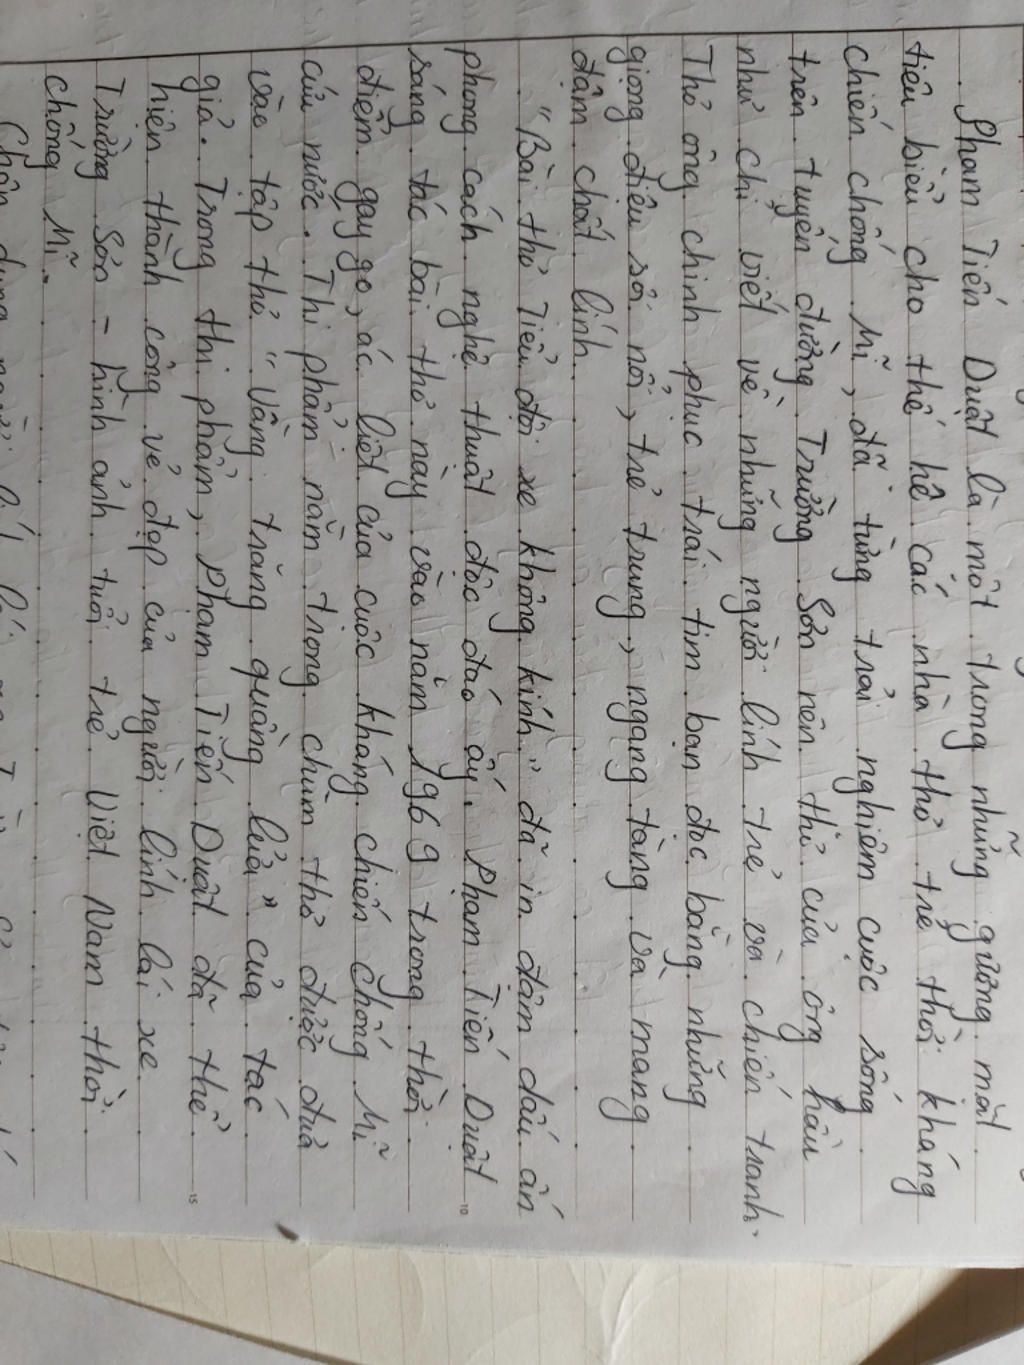 Phạm Tiến Duật là một trong những gương mặt
tiêu biểu cho thế hệ các nhà thơ trẻ thời kháng
chiến chống Mĩ, đã từng trải nghiệm cuộc sống
trên tuyến đường Trường Sơn nên thơ của ông hầu
như chỉ viết về những người lính trẻ và chiến tranh.
Thơ ông chinh phục trái tim bạn đọc bằng những
giọng điệu sôi nổi, trẻ trung, ngang tàng và mang
đậm chất lính.
"Bài thơ Tiểu đội xe không kính" đã in đậm dấu ấn
phong cách nghệ thuật độc đáo ấy. Phạm Tiến Duật
sáng tác bài thơ này vào năm 1969 trong thời
điểm gay go, ác liệt của cuộc kháng chiến chống Mĩ
cứu nước. Thi phẩm nằm trong chùm thơ được đưa
vào tập thơ "Vầng trăng quầng lửa" của tác
giả. Trong thi phẩm, Phạm Tiến Duật đã thể
hiện thành công vẻ đẹp của người lính lái xe
Trường Sơn - hình ảnh tuổi trẻ Việt Nam thời
chống Mĩ.